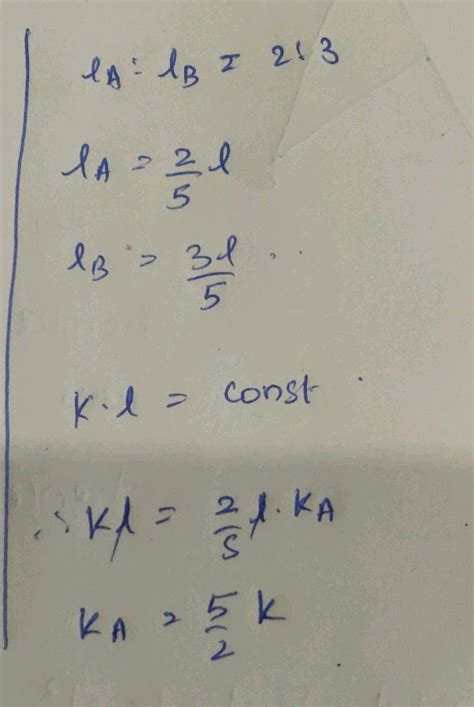 lA : lB = 2:3
lA = 2/5 l
lB = 3l/5 .
K.l = const.
∴ Kl = 2/5 l.KA
KA = 5/2 K